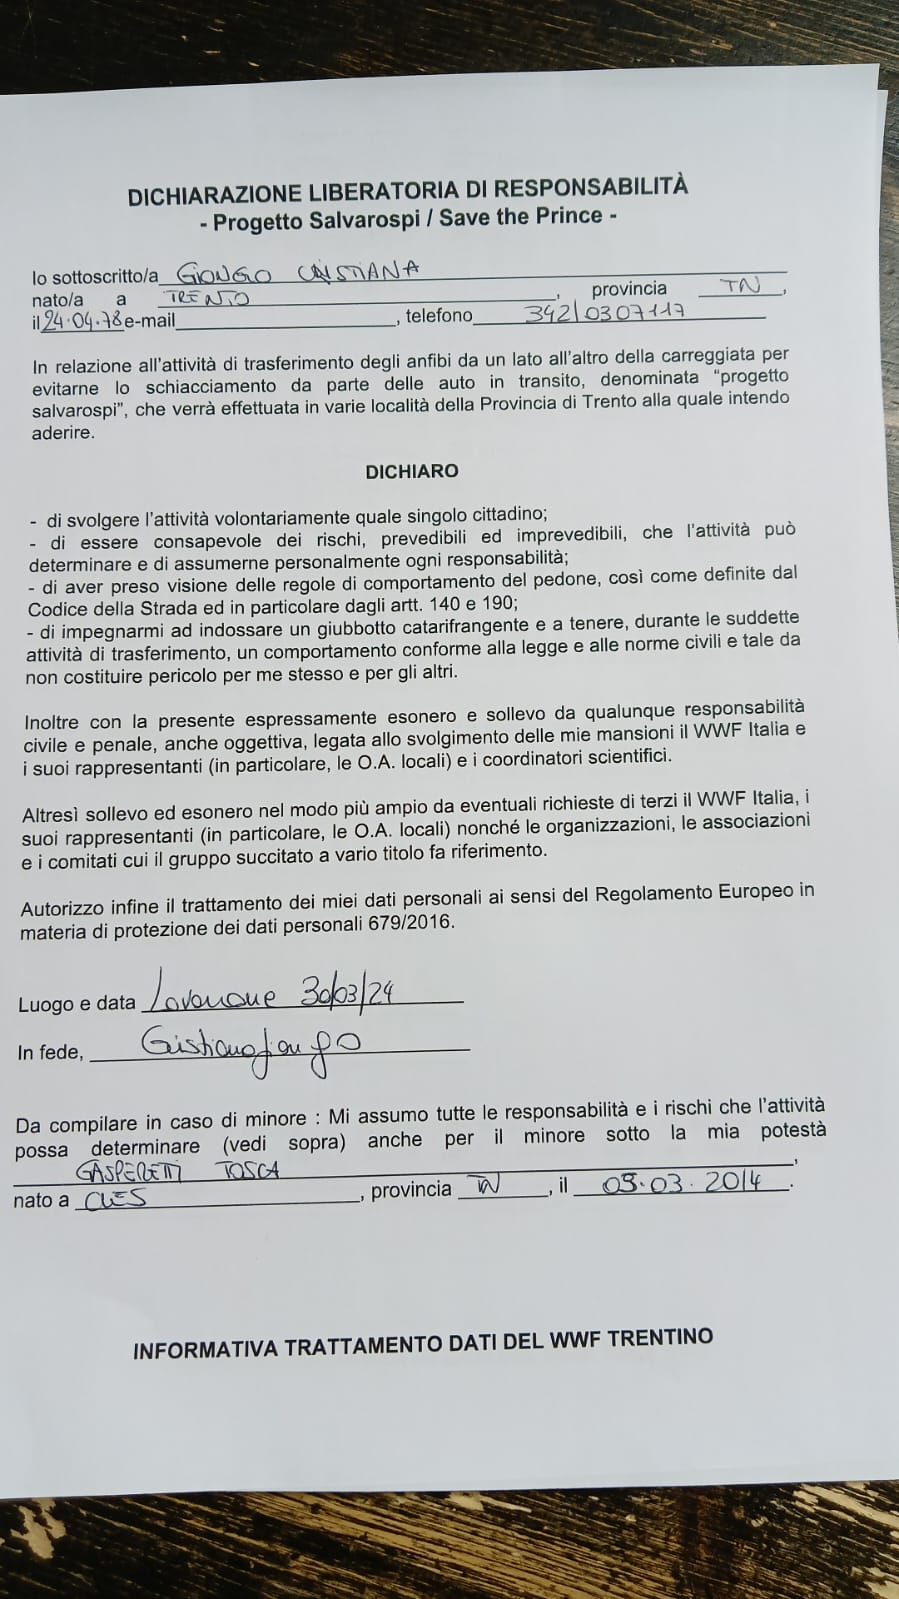 DICHIARAZIONE LIBERATORIA DI RESPONSABILITÀ
- Progetto Salvarospi / Save the Prince -
Io sottoscritto/a GIONGO CRISTIANA
nato/a a TRENTO, provincia TN,
il 24.04.78 e-mail, telefono 342/0307117
In relazione all'attività di trasferimento degli anfibi da un lato all'altro della carreggiata per
evitarne lo schiacciamento da parte delle auto in transito, denominata "progetto
salvarospi", che verrà effettuata in varie località della Provincia di Trento alla quale intendo
aderire.
DICHIARO
- di svolgere l'attività volontariamente quale singolo cittadino;
- di essere consapevole dei rischi, prevedibili ed imprevedibili, che l'attività può
determinare e di assumerne personalmente ogni responsabilità;
- di aver preso visione delle regole di comportamento del pedone, così come definite dal
Codice della Strada ed in particolare dagli artt. 140 e 190;
- di impegnarmi ad indossare un giubbotto catarifrangente e a tenere, durante le suddette
attività di trasferimento, un comportamento conforme alla legge e alle norme civili e tale da
non costituire pericolo per me stesso e per gli altri.
Inoltre con la presente espressamente esonero e sollevo da qualunque responsabilità
civile e penale, anche oggettiva, legata allo svolgimento delle mie mansioni il WWF Italia e
i suoi rappresentanti (in particolare, le O.A. locali) e i coordinatori scientifici.
Altresì sollevo ed esonero nel modo più ampio da eventuali richieste di terzi il WWF Italia, i
suoi rappresentanti (in particolare, le O.A. locali) nonché le organizzazioni, le associazioni
e i comitati cui il gruppo succitato a vario titolo fa riferimento.
Autorizzo infine il trattamento dei miei dati personali ai sensi del Regolamento Europeo in
materia di protezione dei dati personali 679/2016.
Luogo e data Lavarone 30/03/24
In fede, Cristiana Giongo
Da compilare in caso di minore : Mi assumo tutte le responsabilità e i rischi che l'attività
possa determinare (vedi sopra) anche per il minore sotto la mia potestà
GASPERETTI TOSCA,
nato a CLES, provincia TN, il 03.2014.
INFORMATIVA TRATTAMENTO DATI DEL WWF TRENTINO